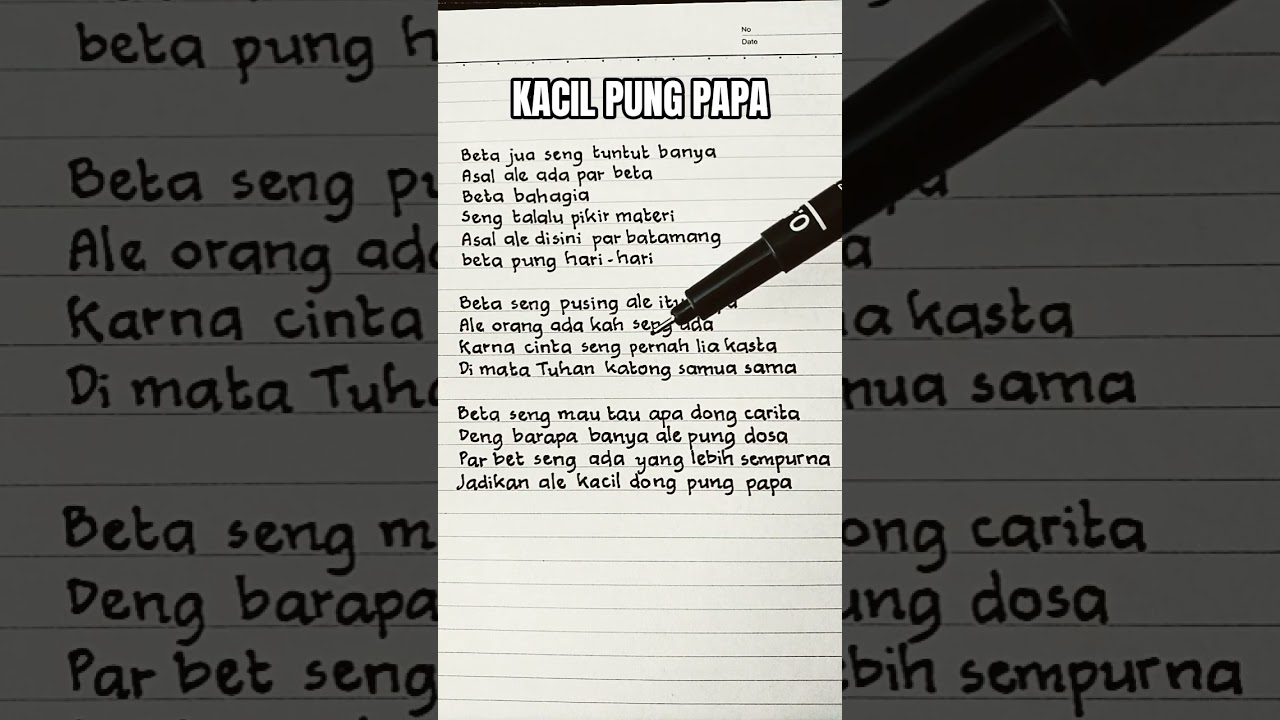 No
Date
KACIL PUNG PAPA
Beta jua seng tuntut banya
Asal ale ada par beta
Beta bahagia
Seng talalu pikir materi
Asal ale disini par batamang
beta pung hari-hari
Beta seng pusing ale itu
Ale orang ada kah seng ada
Karna cinta seng pernah lia kasta
Di mata Tuhan katong samua sama
Beta seng mau tau apa dong carita
Deng barapa banya ale pung dosa
Par bet seng ada yang lebih sempurna
Jadikan ale kacil dong pung papa